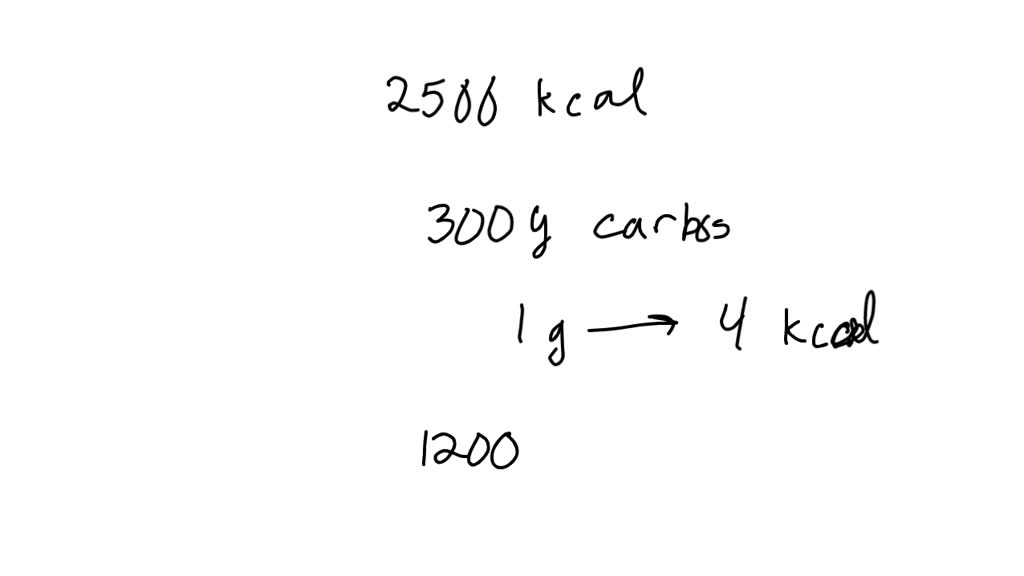 2500 kcal
300 g carbs
1 g → 4 kcal
1200